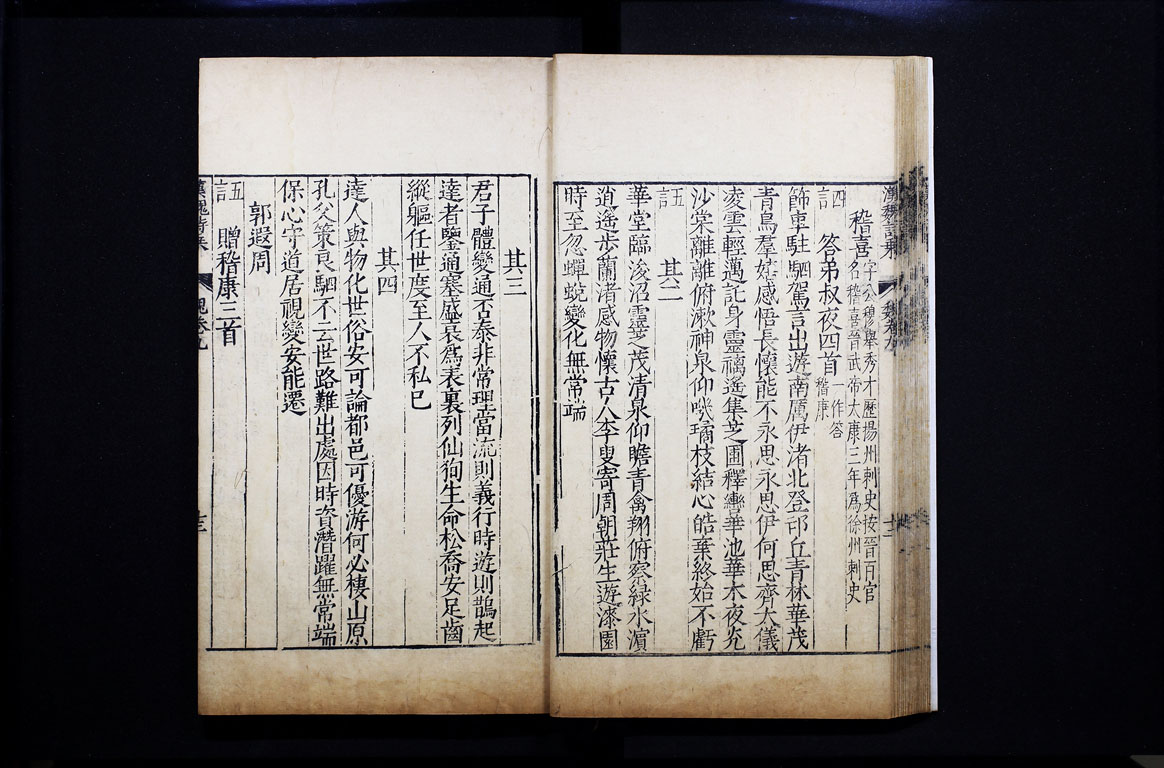 漢魏詩乘 魏卷九 十二
嵇喜 字公穆舉秀才歷揚州刺史按晉百官
名嵇喜晉武帝太康三年爲徐州刺史
四言
答弟叔夜四首 一作答
嵇康
飾車駐駟駕言出遊南厲伊渚北登邙丘青林華茂
青鳥羣嬉感悟長懷能不永思永思伊何思齊大儀
凌雲輕邁託身靈螭遙集芝圃釋轡華池華木夜光
沙棠離離俯漱神泉仰嘰瓊枝結心皓素終始不虧
五言
其二
華堂臨浚沼靈芝茂清泉仰瞻青禽翔俯察綠水濵
逍遙步蘭渚感物懷古人李叟寄周朝莊生遊漆園
時至忽蟬蛻變化無常端
其三
君子體變通否泰非常理當流則義行時遊則鵲起
達者鑒通塞盛衰爲表裏列仙狥生命松喬安足齒
縱軀任世度至人不私已
其四
達人與物化世俗安可論都邑可優游何必棲山原
孔父策良駟不云世路難出處因時資潛躍無常端
保心守道居視變安能遷
郭遐周
五言
贈嵇康三首
漢魏詩乘 魏卷九 十三